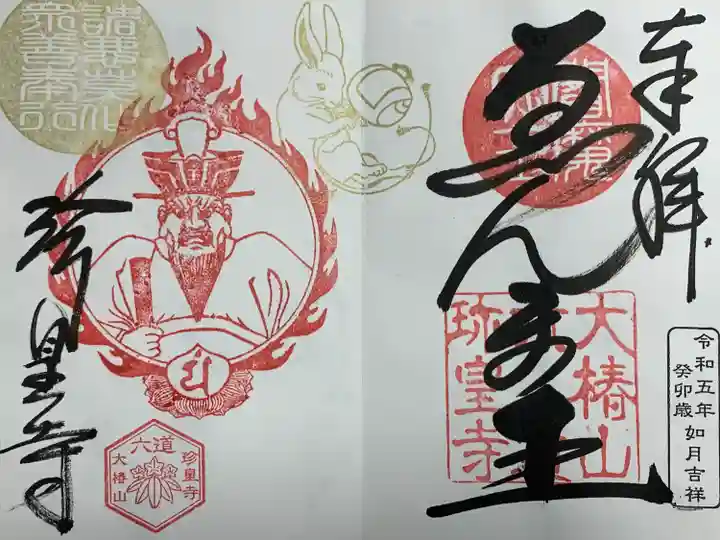 奉拝
ゑんま王
大椿山
珍皇寺
令和五年
癸卯歳 如月吉祥
諸悪莫作
衆善奉行
珍皇寺
六道
珍皇寺
大椿山